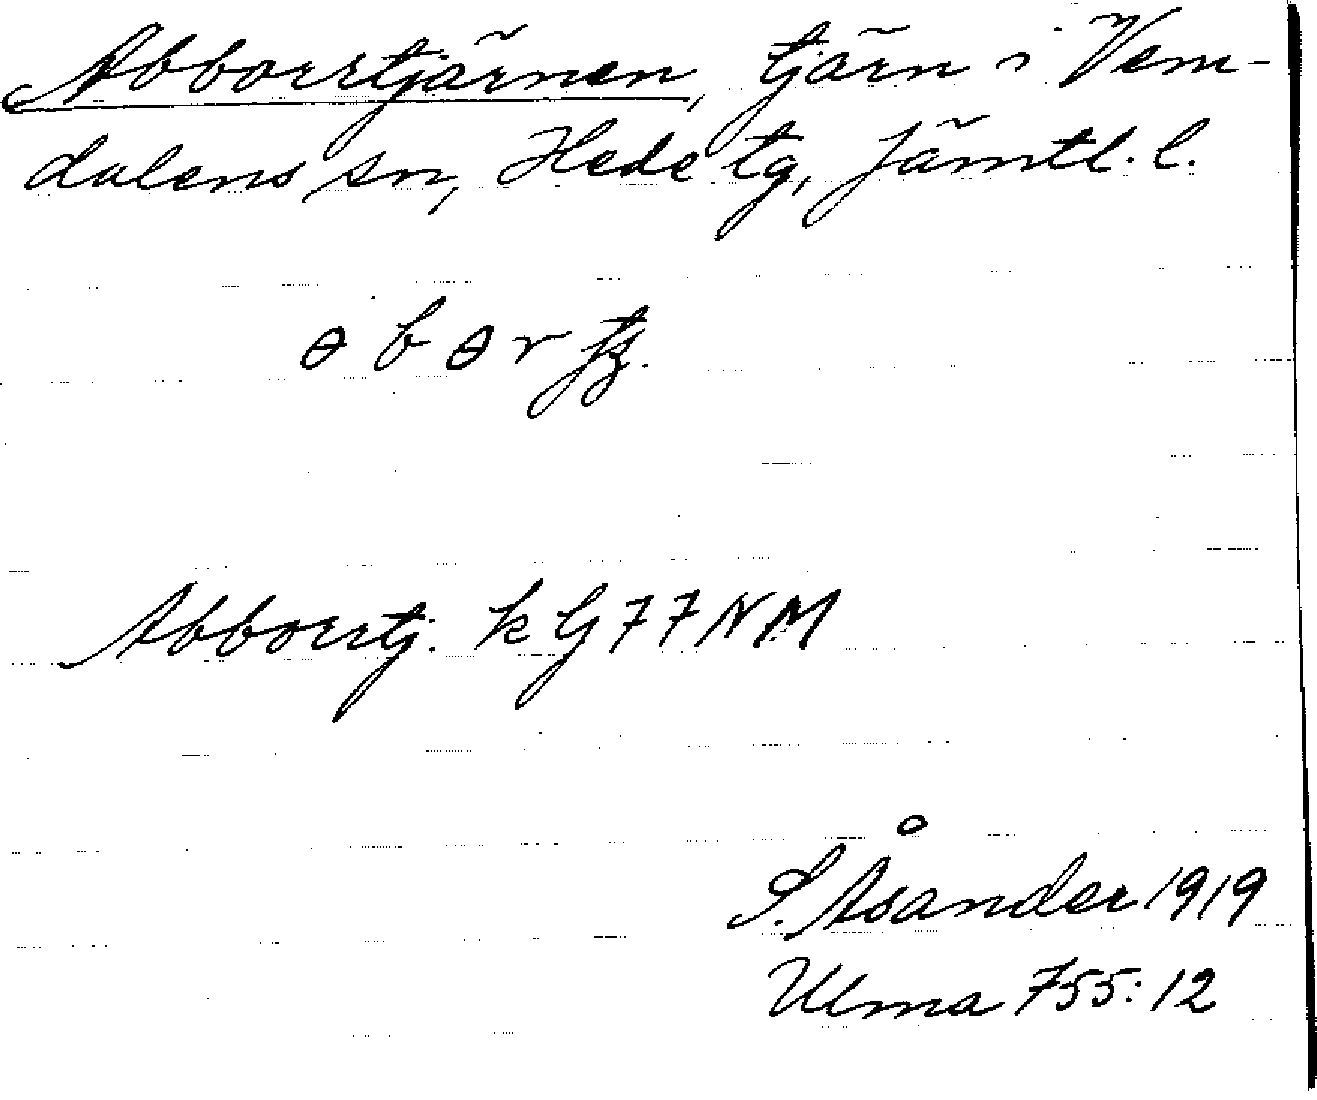 Abborrtjärnen, tjärn i Vem-
dalens sn, Hede tg, Jämtl. l.
Abborrtj. k GJ 77 NM
S. Åsander 1919
Ulma 755:12